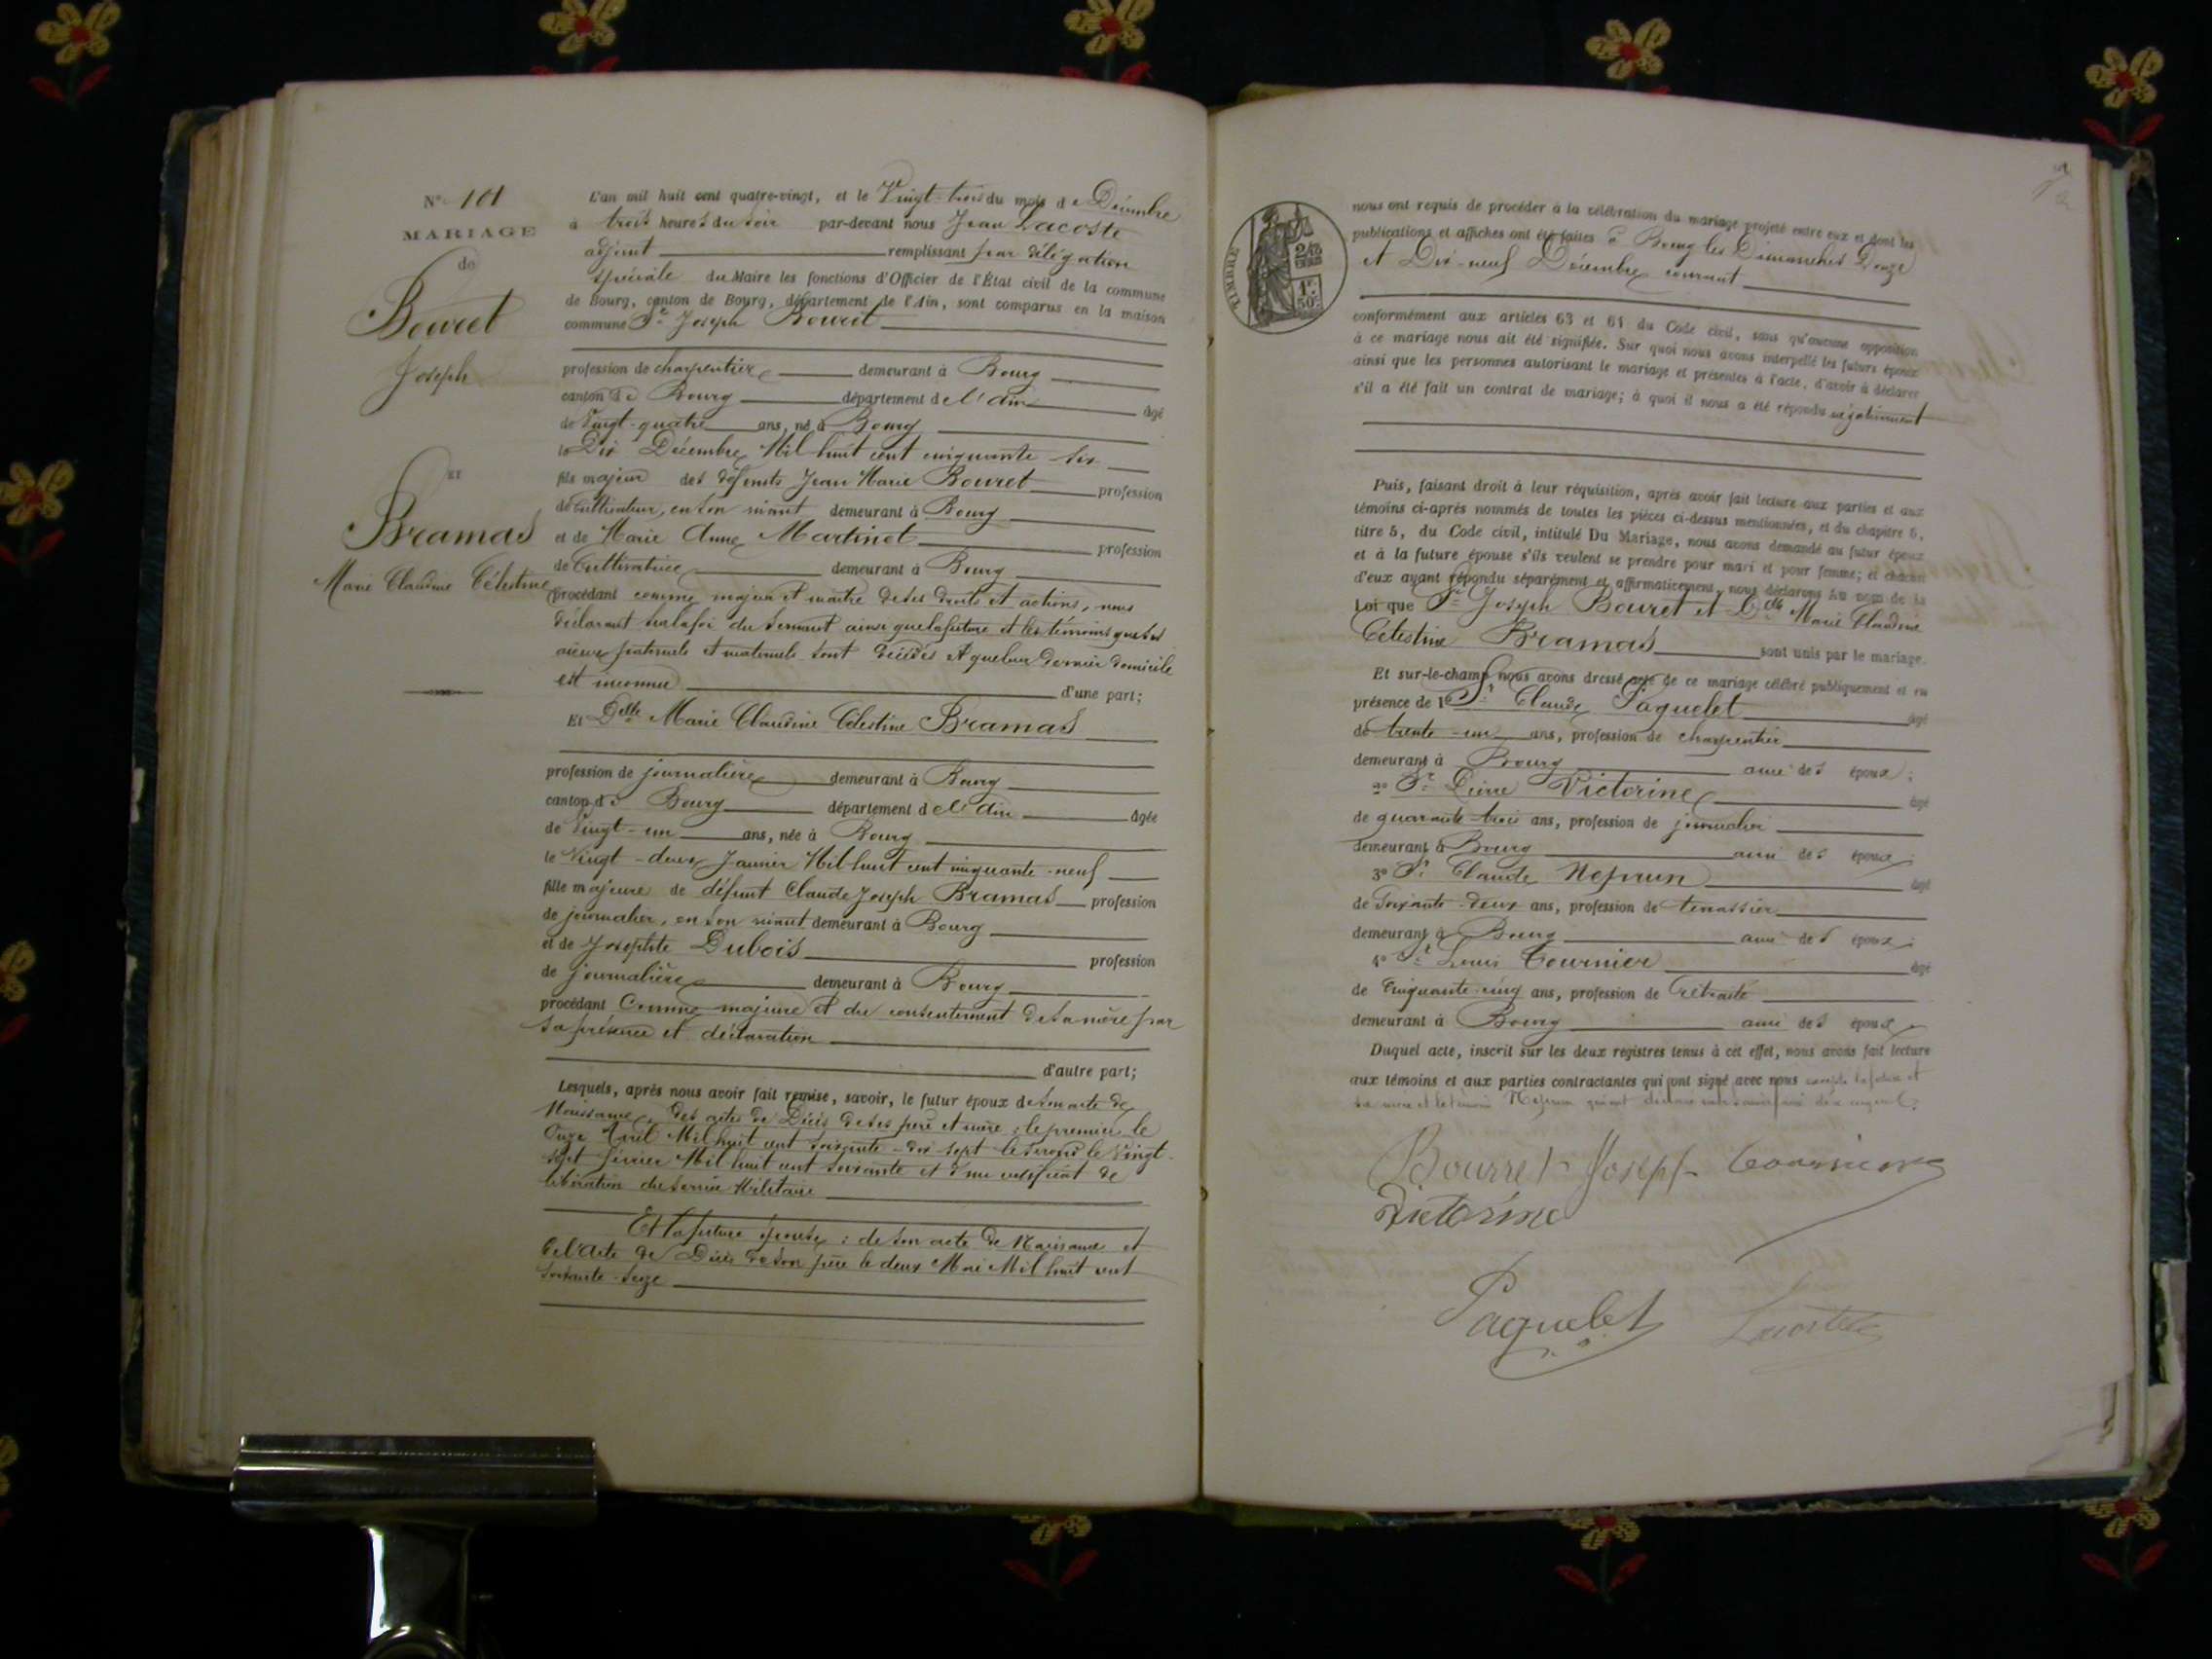 N° 101
MARIAGE
de
Bouret
Joseph
ET
Bramas
Marie Claudine Célestine
L'an mil huit cent quatre-vingt, et le Vingt-trois du mois de Décembre
à trois heures du soir par-devant nous Jean Lacoste
adjoint remplissant par délégation
spéciale du Maire les fonctions d'Officier de l'État civil de la commune
de Bourg, canton de Bourg, département de l'Ain, sont comparus en la maison
commune Sr Joseph Bouret
profession de charpentier demeurant à Bourg
canton de Bourg département de l'Ain âgé
de Vingt-quatre ans, né à Bourg
le Dix Décembre Mil huit cent cinquante-six
fils majeur des défunts Jean Marie Bouret profession
de Cultivateur, en son vivant demeurant à Bourg
et de Marie Anne Martinet profession
de Cultivatrice demeurant à Bourg
procédant comme majeur et maître de ses droits et actions, nous
déclarant sur la foi du serment ainsi que la future et les témoins que ses
aïeux paternels et maternels sont décédés et que leur dernier domicile
est inconnu d'une part;
Et Delle Marie Claudine Célestine Bramas
profession de journalière demeurant à Bourg
canton de Bourg département de l'Ain âgée
de Vingt-un ans, née à Bourg
le Vingt-deux Janvier Mil huit cent cinquante-neuf
fille majeure de défunt Claude Joseph Bramas profession
de journalier, en son vivant demeurant à Bourg
et de Josephte Dubois profession
de journalière demeurant à Bourg
procédant Comme majeure et du consentement de sa mère par
sa présence et déclaration
d'autre part;
Lesquels, après nous avoir fait remise, savoir, le futur époux de son acte de
Naissance, des actes de Décès de ses père et mère : le premier le
Onze Avril Mil huit cent soixante-dix-sept le second le Vingt-
sept février Mil huit cent soixante et d'un certificat de
libération du service Militaire
Et la future épouse : de son acte de Naissance et
de l'acte de Décès de son père le deux Mai Mil huit cent
soixante-seize
TIMBRE
nous ont requis de procéder à la célébration du mariage projeté entre eux et dont les
publications et affiches ont été faites à Bourg les Dimanches Douze
et Dix-neuf Décembre courant
conformément aux articles 63 et 64 du Code civil, sans qu'aucune opposition
à ce mariage nous ait été signifiée. Sur quoi nous avons interpellé les futurs époux
ainsi que les personnes autorisant le mariage et présentes à l'acte, d'avoir à déclarer
s'il a été fait un contrat de mariage; à quoi il nous a été répondu négativement
Puis, faisant droit à leur réquisition, après avoir fait lecture aux parties et aux
témoins ci-après nommés de toutes les pièces ci-dessus mentionnées, et du chapitre 6,
titre 5, du Code civil, intitulé Du Mariage, nous avons demandé au futur époux
et à la future épouse s'ils veulent se prendre pour mari et pour femme; et chacun
d'eux ayant répondu séparément et affirmativement, nous déclarons au nom de la
Loi que Sr Joseph Bouret et Delle Marie Claudine
Célestine Bramas sont unis par le mariage.
Et sur-le-champ nous avons dressé acte de ce mariage célébré publiquement et en
présence de 1° Sr Claude Paquelet âgé
de trente-un ans, profession de charpentier
demeurant à Bourg ami des époux;
2° Sr Pierre Victorine âgé
de quarante-trois ans, profession de journalier
demeurant à Bourg ami des époux;
3° Sr Claude Neprun âgé
de Soixante-deux ans, profession de terrassier
demeurant à Bourg ami des époux;
4° Sr Louis Tournier âgé
de Cinquante-cinq ans, profession de Retraité
demeurant à Bourg ami des époux.
Duquel acte, inscrit sur les deux registres tenus à cet effet, nous avons fait lecture
aux témoins et aux parties contractantes qui ont signé avec nous excepté la future et
sa mère et le témoin Neprun qui ont déclaré ne le savoir
Bourret Joseph Tournier
Victorine
Paquelet Lacoste